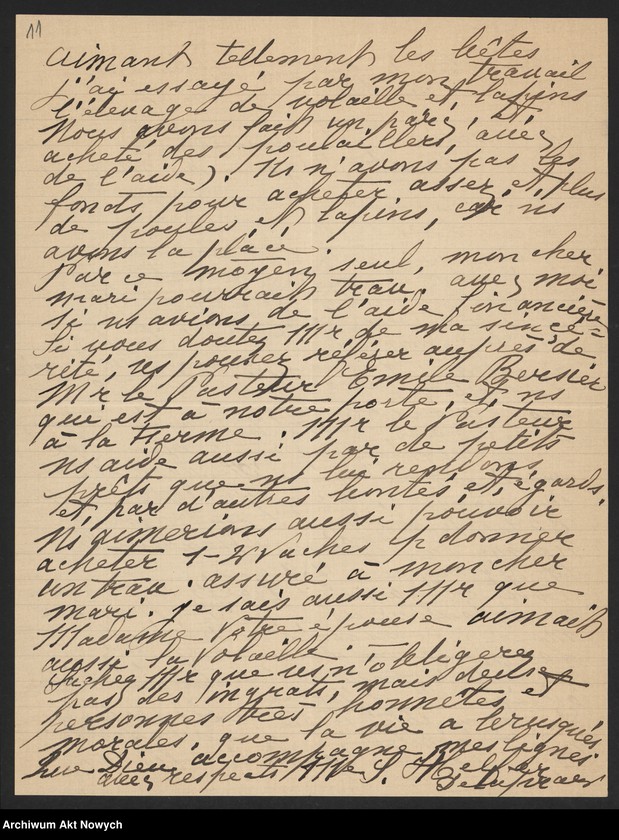 11
aimant tellement les bêtes
j'ai essayé par mon travail
l'élevage de volaille et lapins
Nous avons fait un parc, et
acheté des poulaillers, avec
de l'aide). Ns n'avons pas les
fonds pour acheter asser, et plus
de poules et lapins, car ns
avons la place.
Par ce moyen seul, mon cher
mari pourrait trav. avec moi
si ns avions de l'aide financière
Si vous doutez Mr de ma sincé=
rité, vs pouvez référer auprès de
Mr le Pasteur Emile Bersier
qui est à notre porte, et ns
à la Ferme. Mr le Pasteur
ns aide aussi par de petits
prêts que ns lui rendons
et par d'autres bontés et égards.
Ns aimerions aussi pouvoir
acheter 1-2 vaches p donner
un trav. assuré à mon cher
mari. je sais aussi Mr que
Madame Votre épouse aimait
aussi la volaille.
Sachez Mr que vs n'obligerez
pas des ingrats, mais deux
personnes très honnêtes et
morales, que la vie a brusqués
Que Dieu accompagne mes lignes
avec respects Mme S.